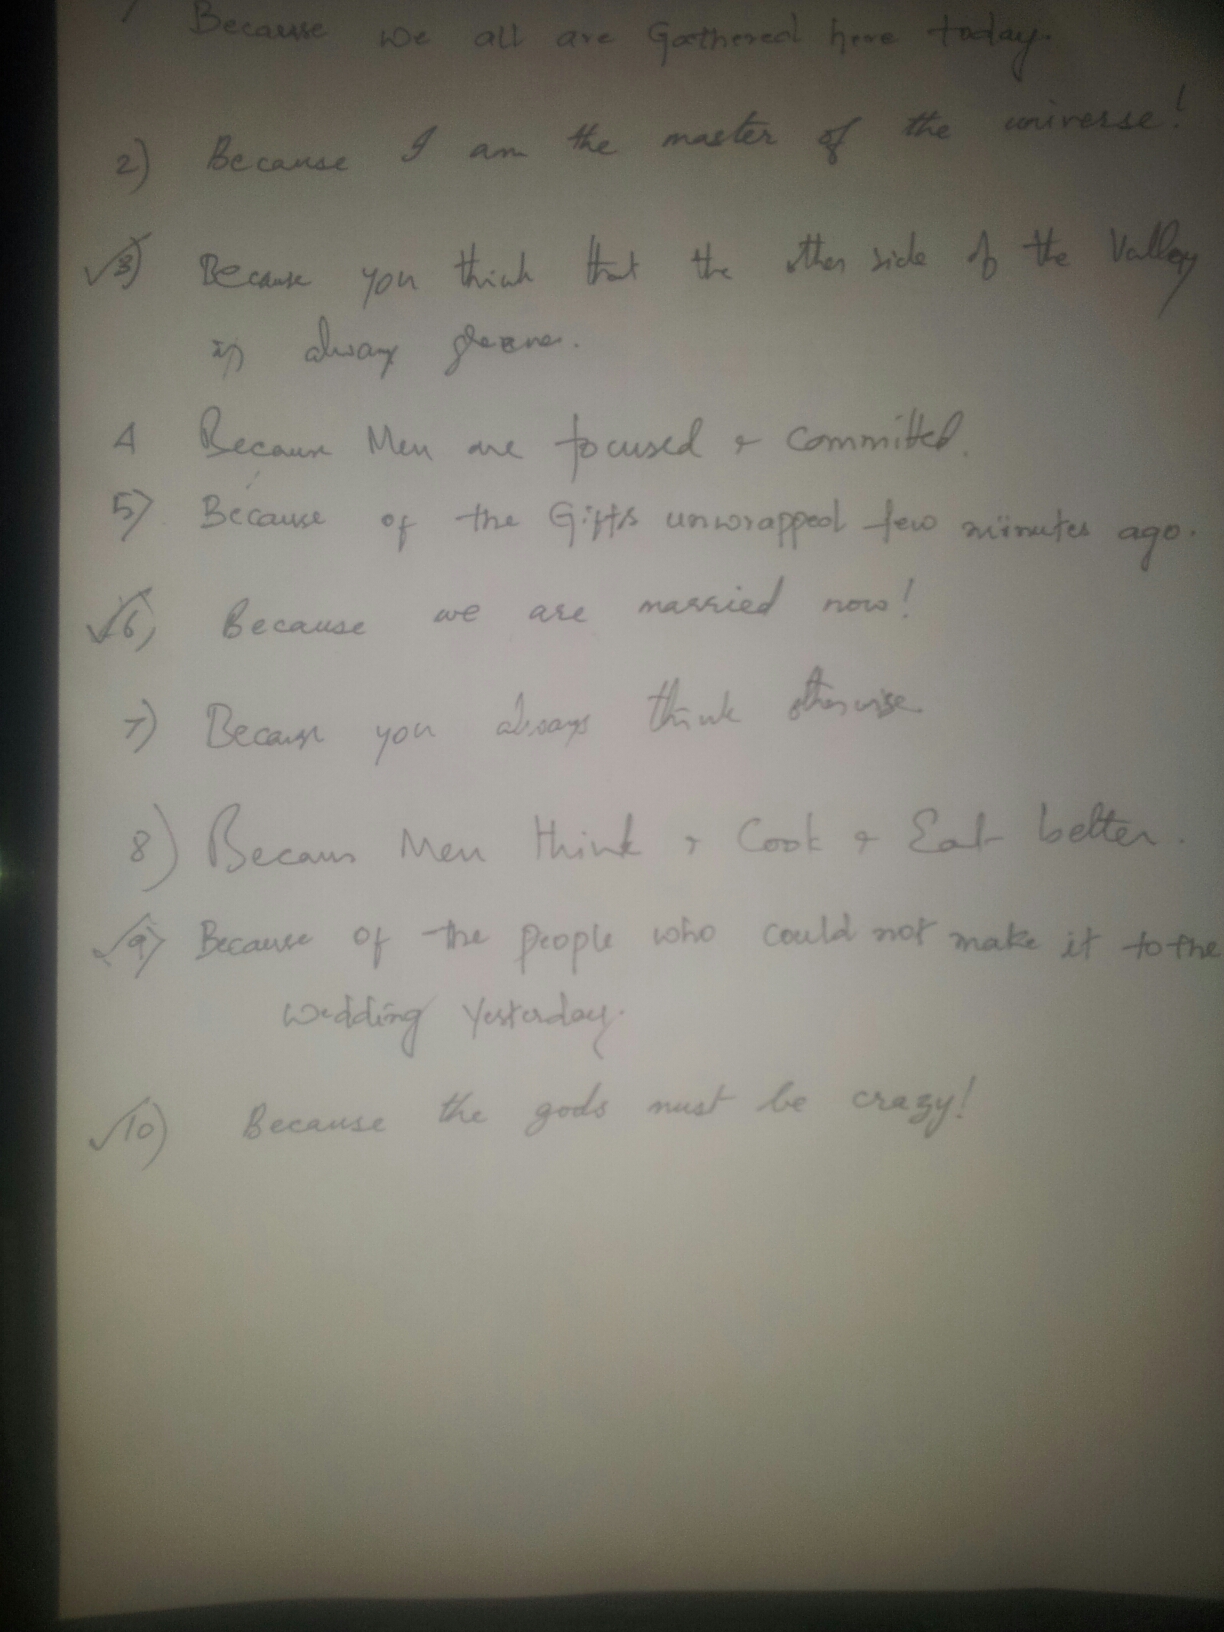 Because we all are Gathered here today.
2) Because I am the master of the universe!
√3) Because you think that the other side of the Valley
is always greener.
4 Because Men are focused & committed.
5) Because of the Gifts unwrapped few minutes ago.
√6) Because we are married now!
7) Because you always think otherwise.
8) Because Men think & Cook & Eat better.
√9) Because of the people who could not make it to the
wedding yesterday.
√10) Because the gods must be crazy!